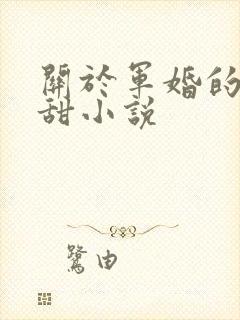 關於軍婚的
甜小說
鷺由